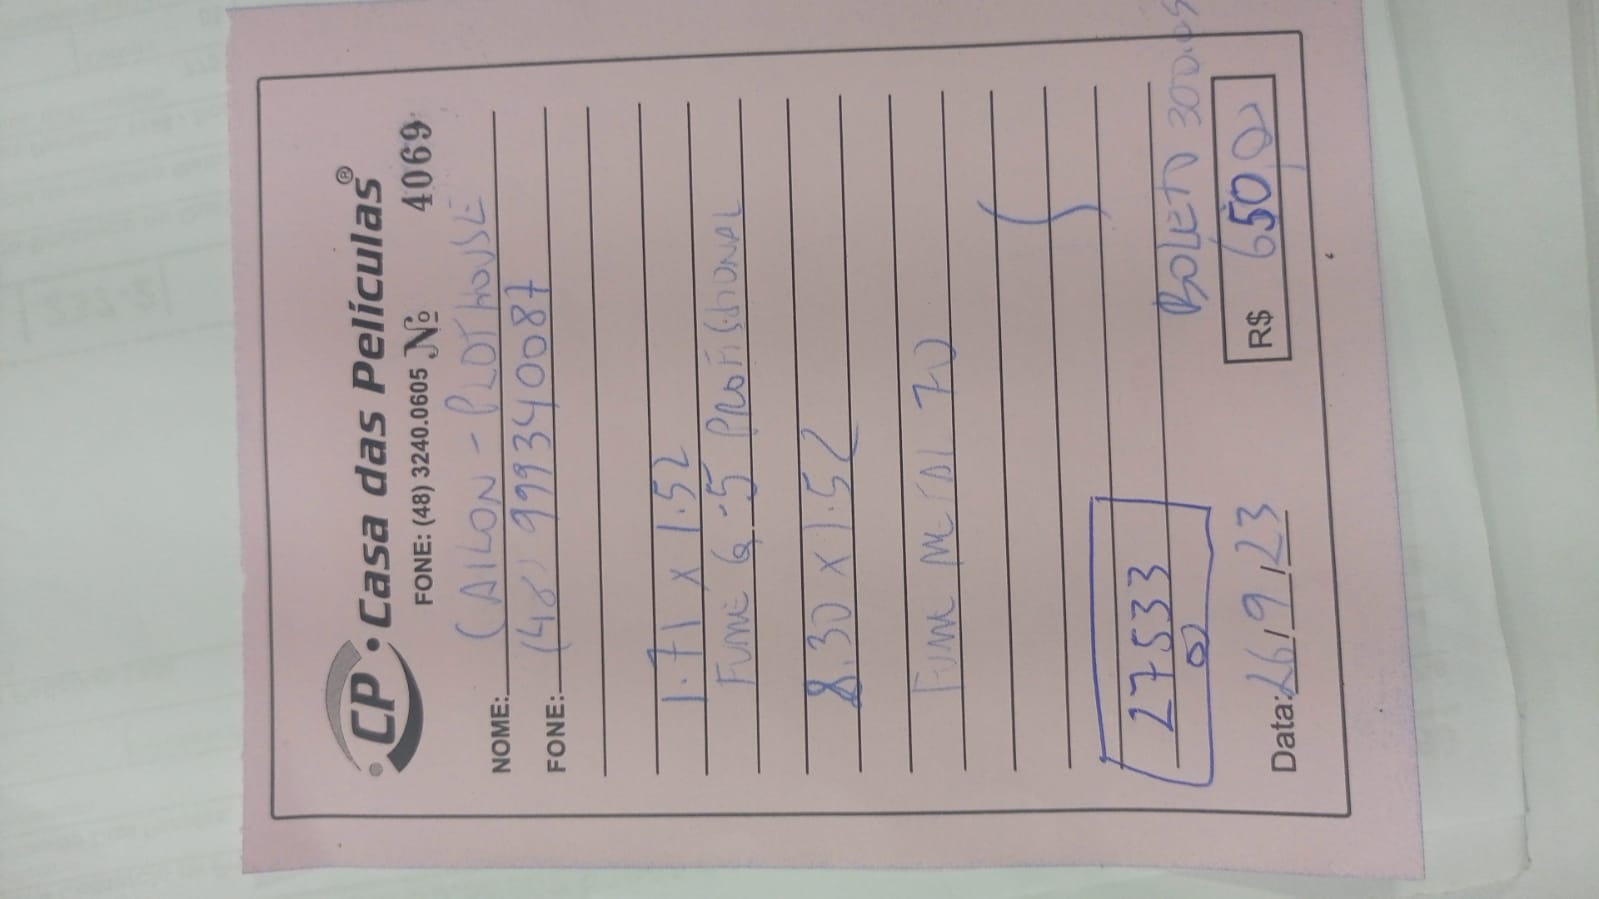 CP. Casa das Películas®
FONE: (48) 3240.0605 Nº 4069
NOME: CAILON - PLOT HOUSE
FONE: (48) 999340087
1.71 x 1.52
FUME G.5 PROFISSIONAL
8.30 x 1.52
FUME METAL 70
27533
BOLETO 30DIAS
R$ 650,00
Data: 26/9/23